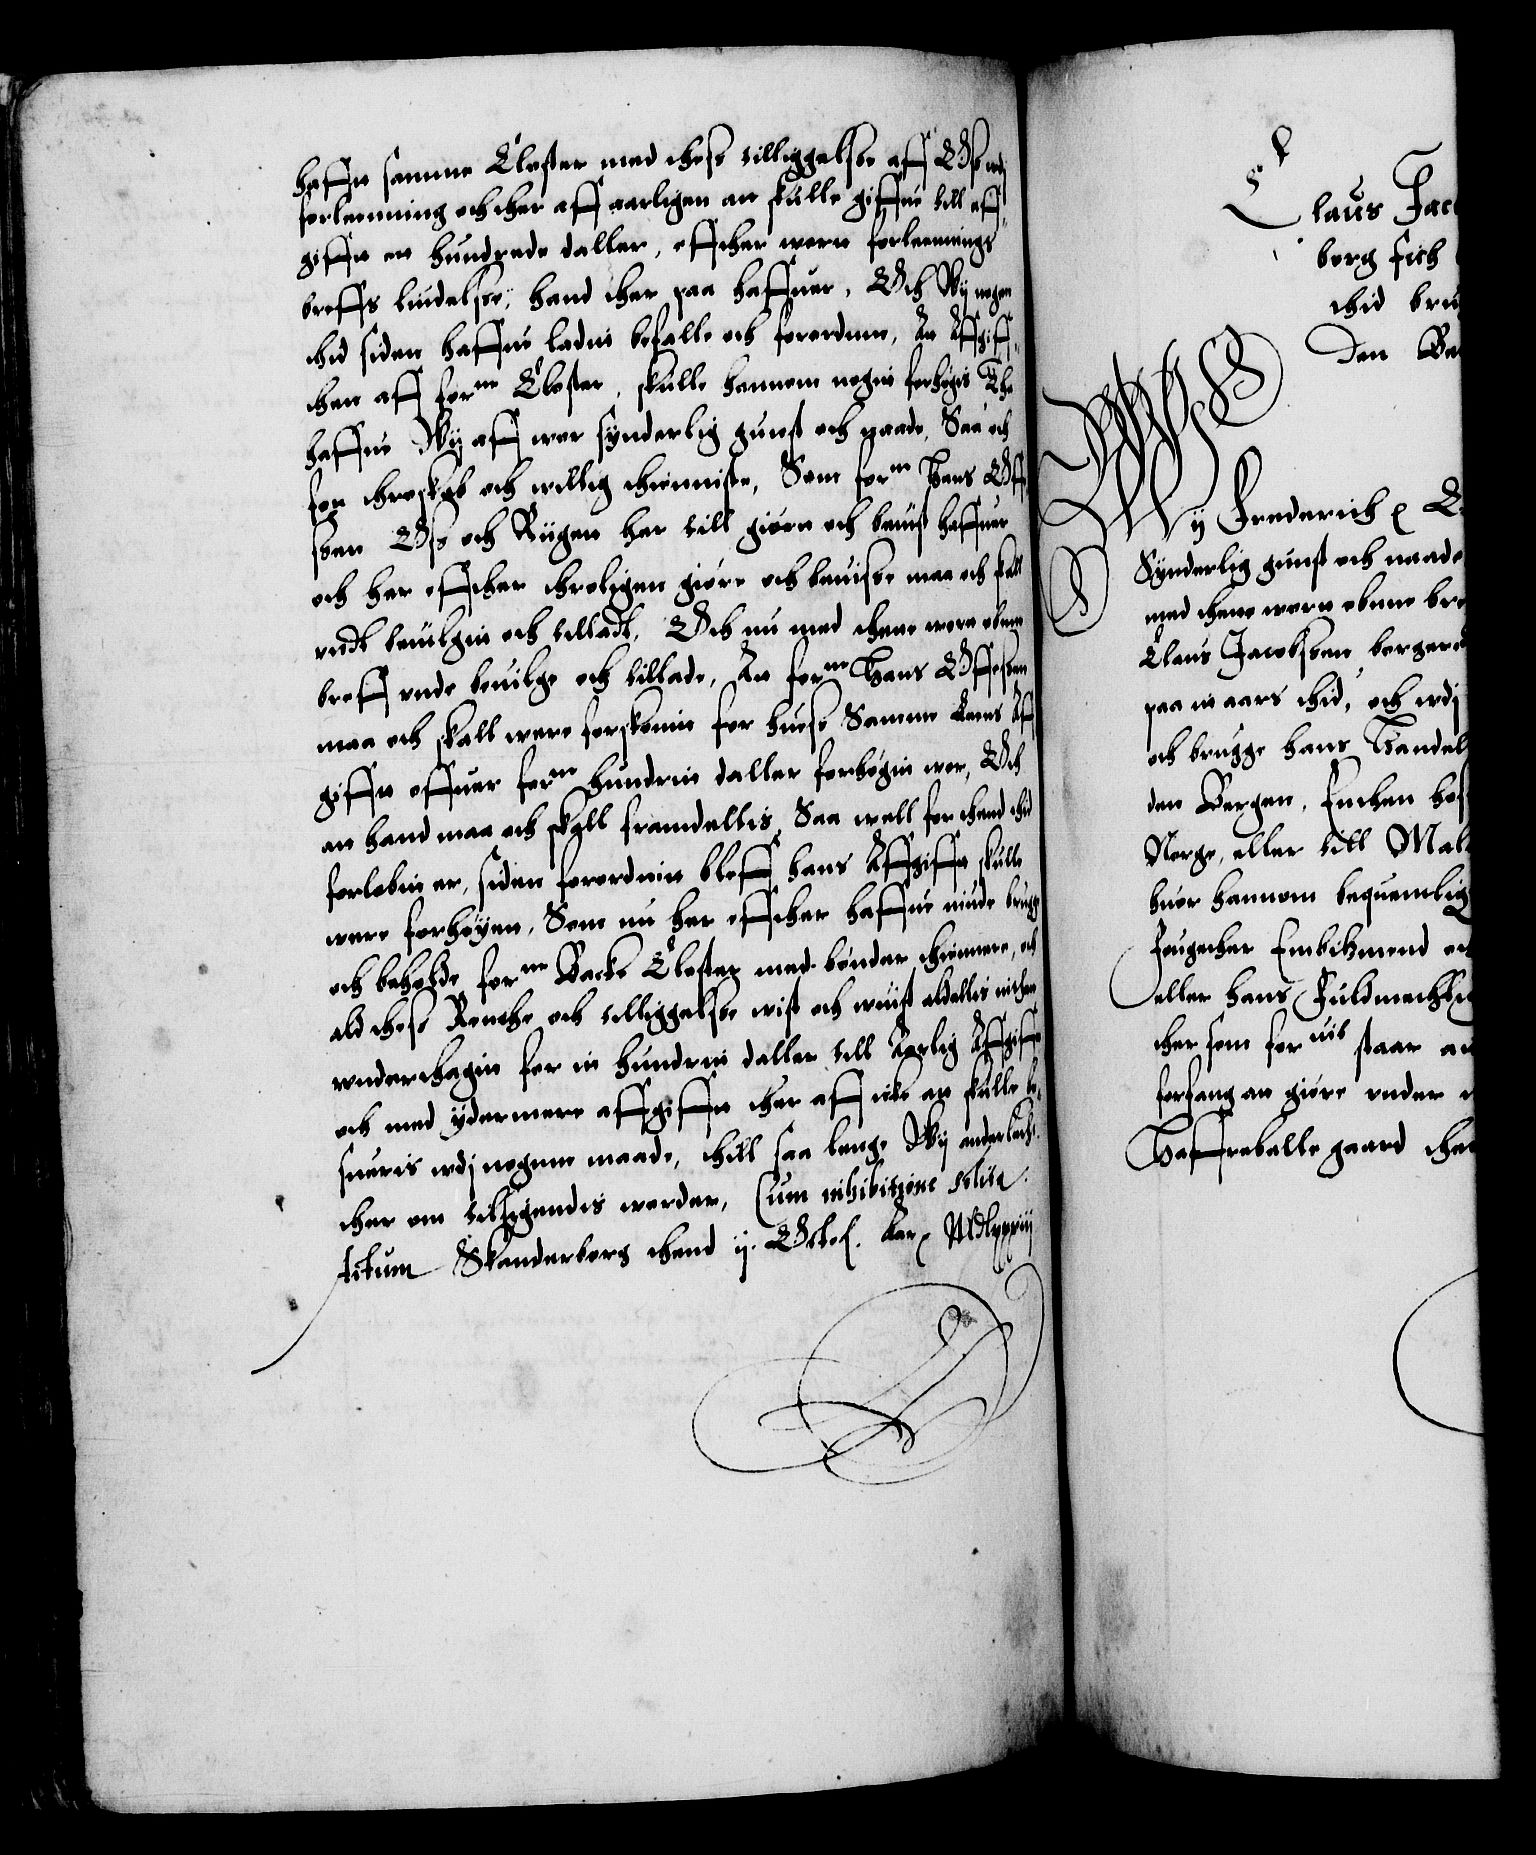 haffe samme Closter med thess tilliggelsse aff Oss vdj
forleenning och ther aff aarligen an skulle giffue till aff¬
gifft en hundrede daller, effther wore forleennings
breffs liudelsse, hand ther paa haffuer, Och Wij nogen
thid siden haffue ladit befalle och forordne, At Affgiff¬
then aff forne Closter, skulle hannom nogit forhøgis Tha
haffue Wij aff wor synderlig gunst och naade, Saa och
for throskab och willig thienniste, Som forne Hans Off¬
ssen Oss och Riigen her till giort och beuist haffuer
och her effther throligen giøre och beuisse maa och skall
vndt beuilgit och tilladt, Och nu med thette wort obne
breff vnde beuilge och tillade, At forne Hans Offessen
maa och skall were forskonit for huess Samme Hans Aff
gifft offuer forne hundrit daller forhøgit wor, Och
an hand maa och skall framdellis, Saa well for thend thid
forløbin er, siden forordnit bleff hans Affgifft skulle
were forhøyett, Som nu her effther haffue niude brugge
och beholde forne Backe Closter med bønder thiennere, och
ald thess Renthe och tilliggelsse wist och wuist aldellis inthet
wnderthagit for it hundrit daller till Aarlig Affgifft
och med ydermere affgifft ther aff icke an skulle be¬
sueris wdj nogenn maade, thill saa lenge Wij anderledis
ther om tilsigendis worder, Cum inhibitione solita.
Actum Skanderborg thend ij. Octob. Aar MDlxxxiij

Claus Jac
berg fich
thid bru
den Be
Wij Frederich
Synderlig gunst och naade
med thette wort obne bre
Claus Jacobssen, borgere
paa it aars thid, och wdj
och brugge hans Handel
den Bergen,
Norge, eller till Mal
huor hannom bequemlig
Embitzmend
eller hans Fuldmechti
ther som for uit staar
forfang an giøre vnder
Hassneballegaard the